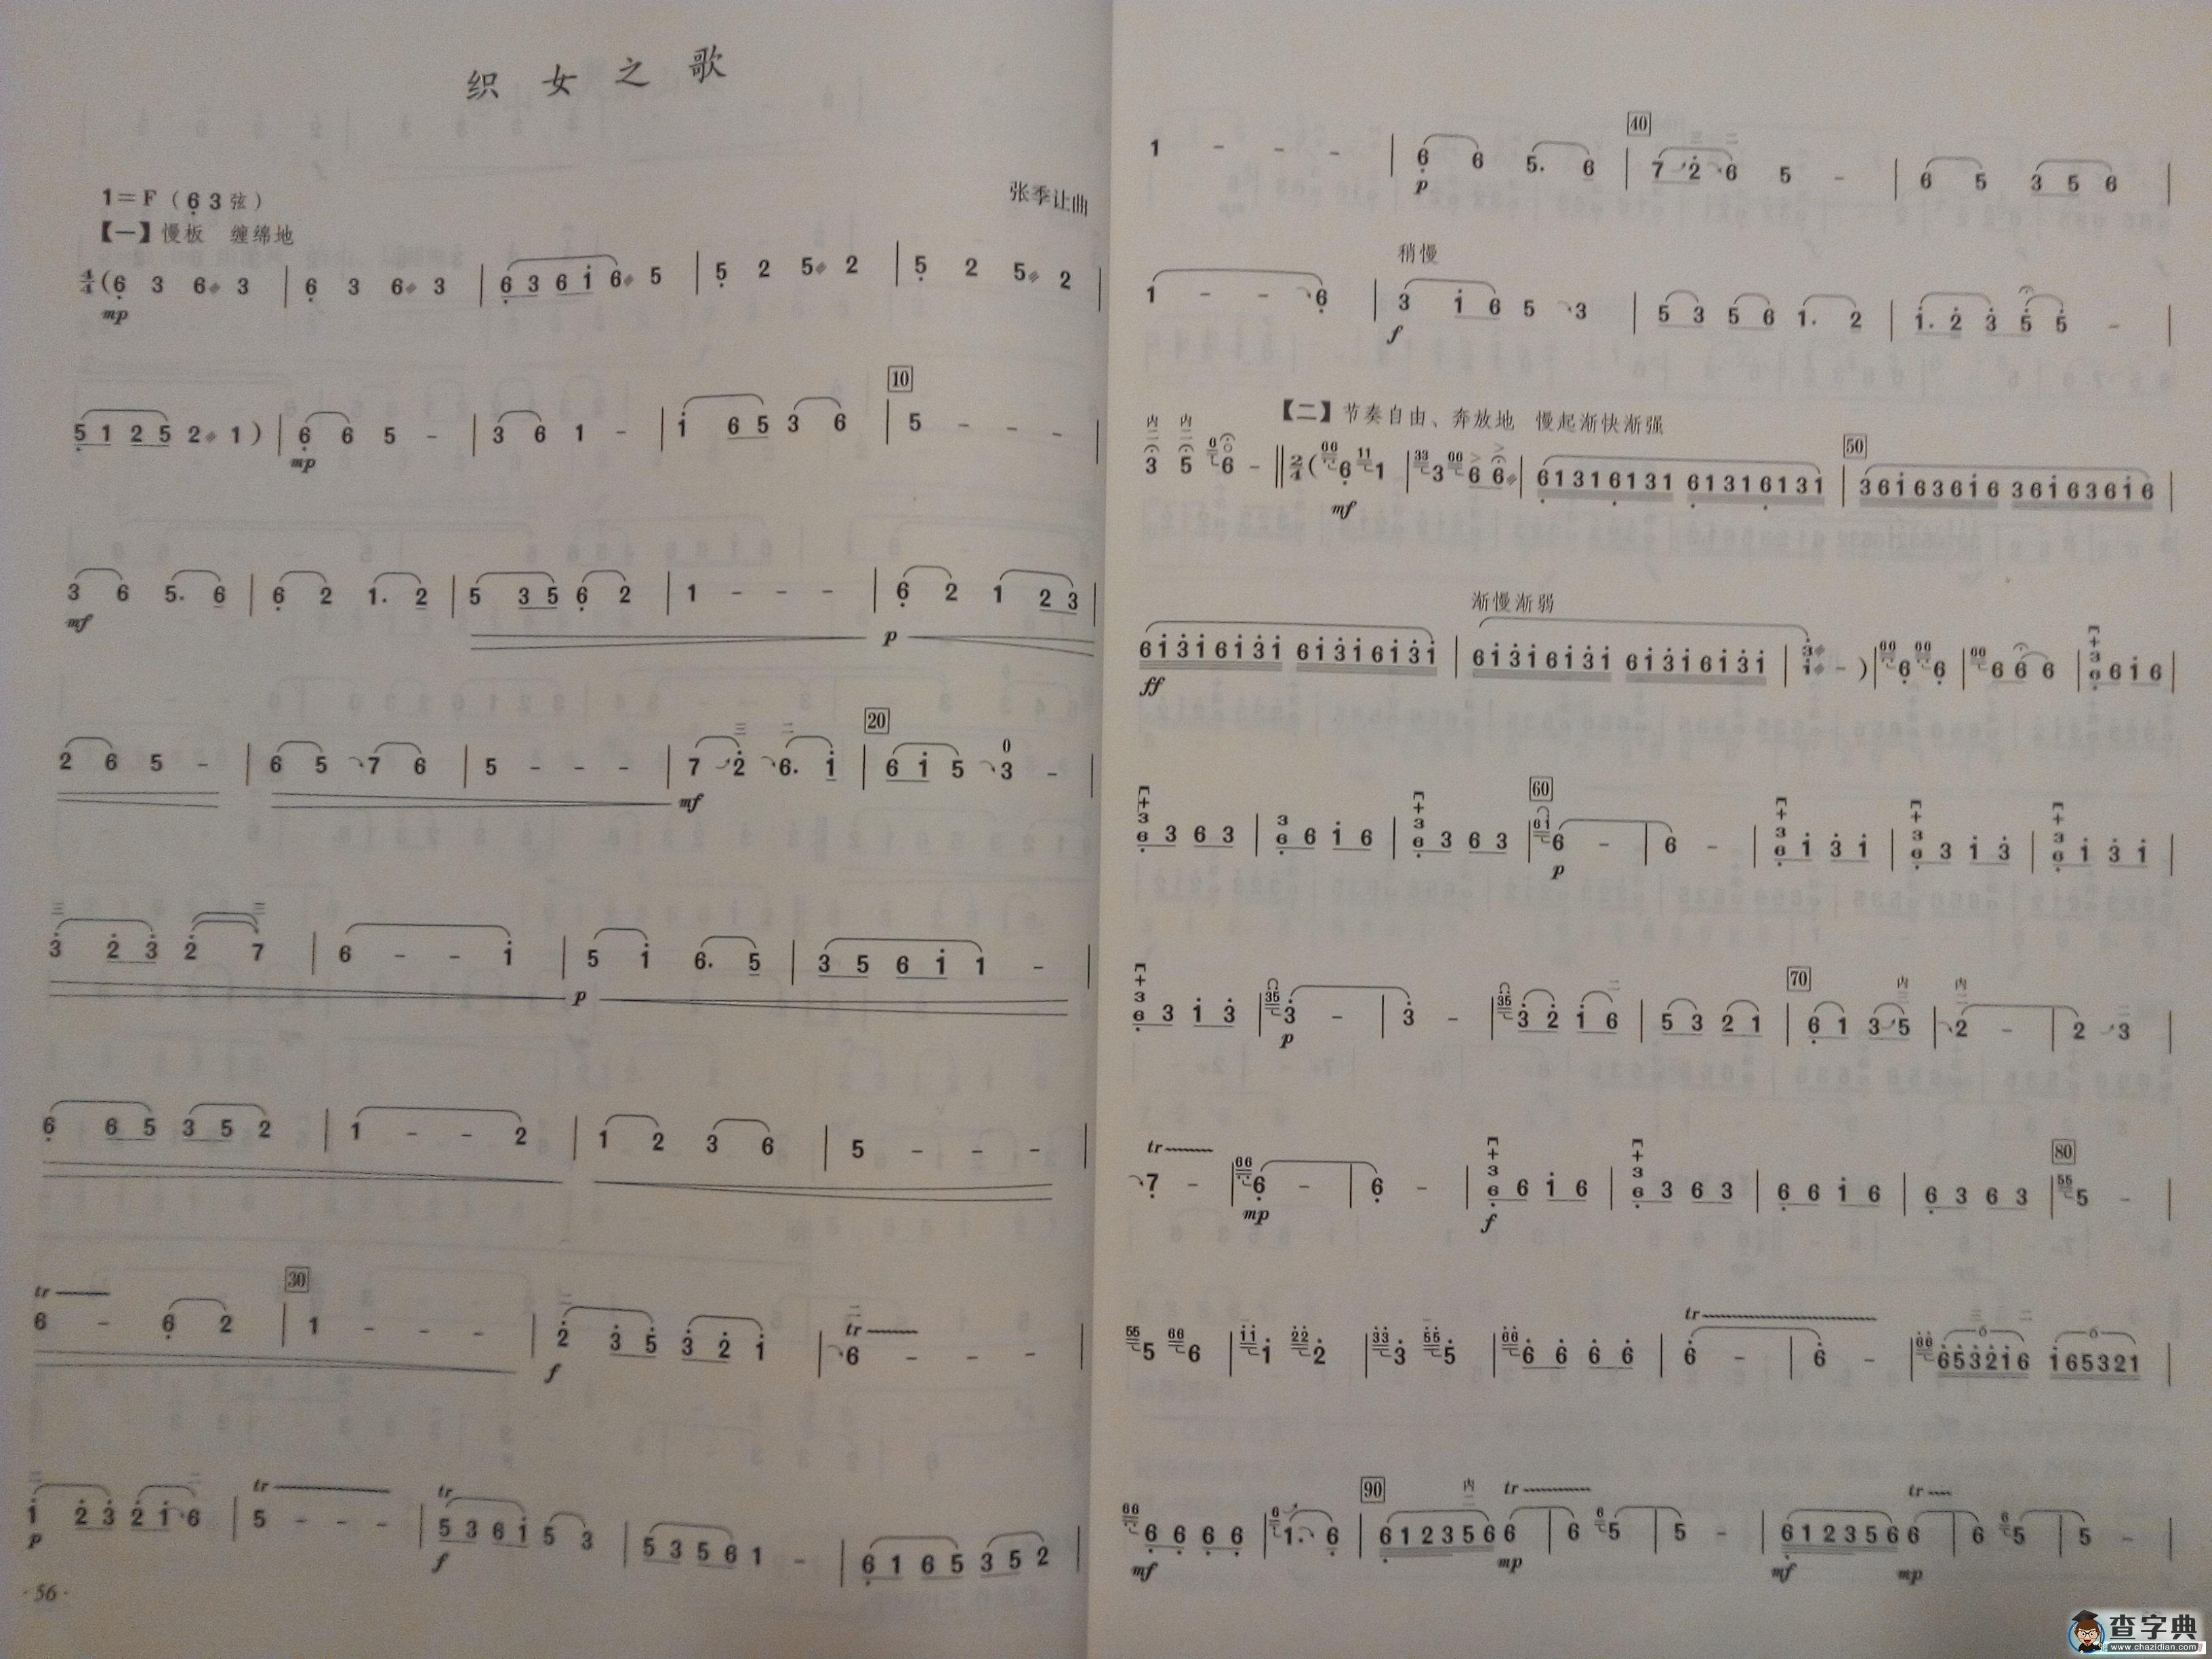 织 女 之 歌
1=F（6 3 弦）
张季让曲
【一】慢板 缠绵地
4/4 (6 3 6 3 | 6 3 6 3 | 6 3 6 i 6 5 | 5 2 5 2 | 5 2 5 2 |
mp
10
5 1 2 5 2 1 ) | 6 6 5 - | 3 6 1 - | i 6 5 3 6 | 5 - - - |
mp
3 6 5. 6 | 6 2 1. 2 | 5 3 5 6 2 | 1 - - - | 6 2 1 2 3 |
mf p
三 二 20
2 6 5 - | 6 5 7 6 | 5 - - - | 7 2 6. i | 6 i 5 3 - |
mf
三 三
3 2 3 2 7 | 6 - - i | 5 i 6. 5 | 3 5 6 i 1 - |
p
6 6 5 3 5 2 | 1 - - 2 | 1 2 3 6 | 5 - - - |
tr 30 二 二 tr
6 - 6 2 | 1 - - - | 2 3 5 3 2 i | 6 - - - |
f
二 二 tr tr
i 2 3 2 i 6 | 5 - - - | 5 3 6 i 5 3 | 5 3 5 6 1 - | 6 1 6 5 3 5 2 |
p f
·56·
40 三 二
1 - - - | 6 6 5. 6 | 7 2 6 5 - | 6 5 3 5 6 |
p
稍慢
1 - - 6 | 3 i 6 5 3 | 5 3 5 6 1. 2 | i. 2 3 5 5 - |
f
【二】节奏自由、奔放地 慢起渐快渐强
内二 内二 50
3 5 6 - || 2/4 ( 6 1 | 3 6 6 | 61316131 61316131 | 36i636i6 36i636i6 |
mf
渐慢渐弱
6i3i6i3i 6i3i6i3i | 6i3i6i3i 6i3i6i3i | 3 i - ) | 6 6 | 6 6 6 | 6 6 i 6 |
ff
60
6 3 6 3 | 6 6 i 6 | 6 3 6 3 | 6 - | 6 - | 6 i 3 i | 6 3 i 3 | 6 i 3 i |
p
二 70 内三 内二 二
6 3 i 3 | 3 - | 3 - | 3 2 i 6 | 5 3 2 1 | 6 1 3 5 | 2 - | 2 3 |
p
tr 80
7 - | 6 - | 6 - | 6 6 i 6 | 6 3 6 3 | 6 6 i 6 | 6 3 6 3 | 5 - |
mp f
tr 三 二
5 6 | i 2 | 3 5 | 6 6 6 6 | 6 - | 6 - | 6532i6 i65321 |
90 内二 tr tr
6 6 6 6 | 1. 6 | 6123566 | 6 5 | 5 - | 6123566 | 6 5 | 5 - |
mf mp mf mp
查字典
www.chazidian.com